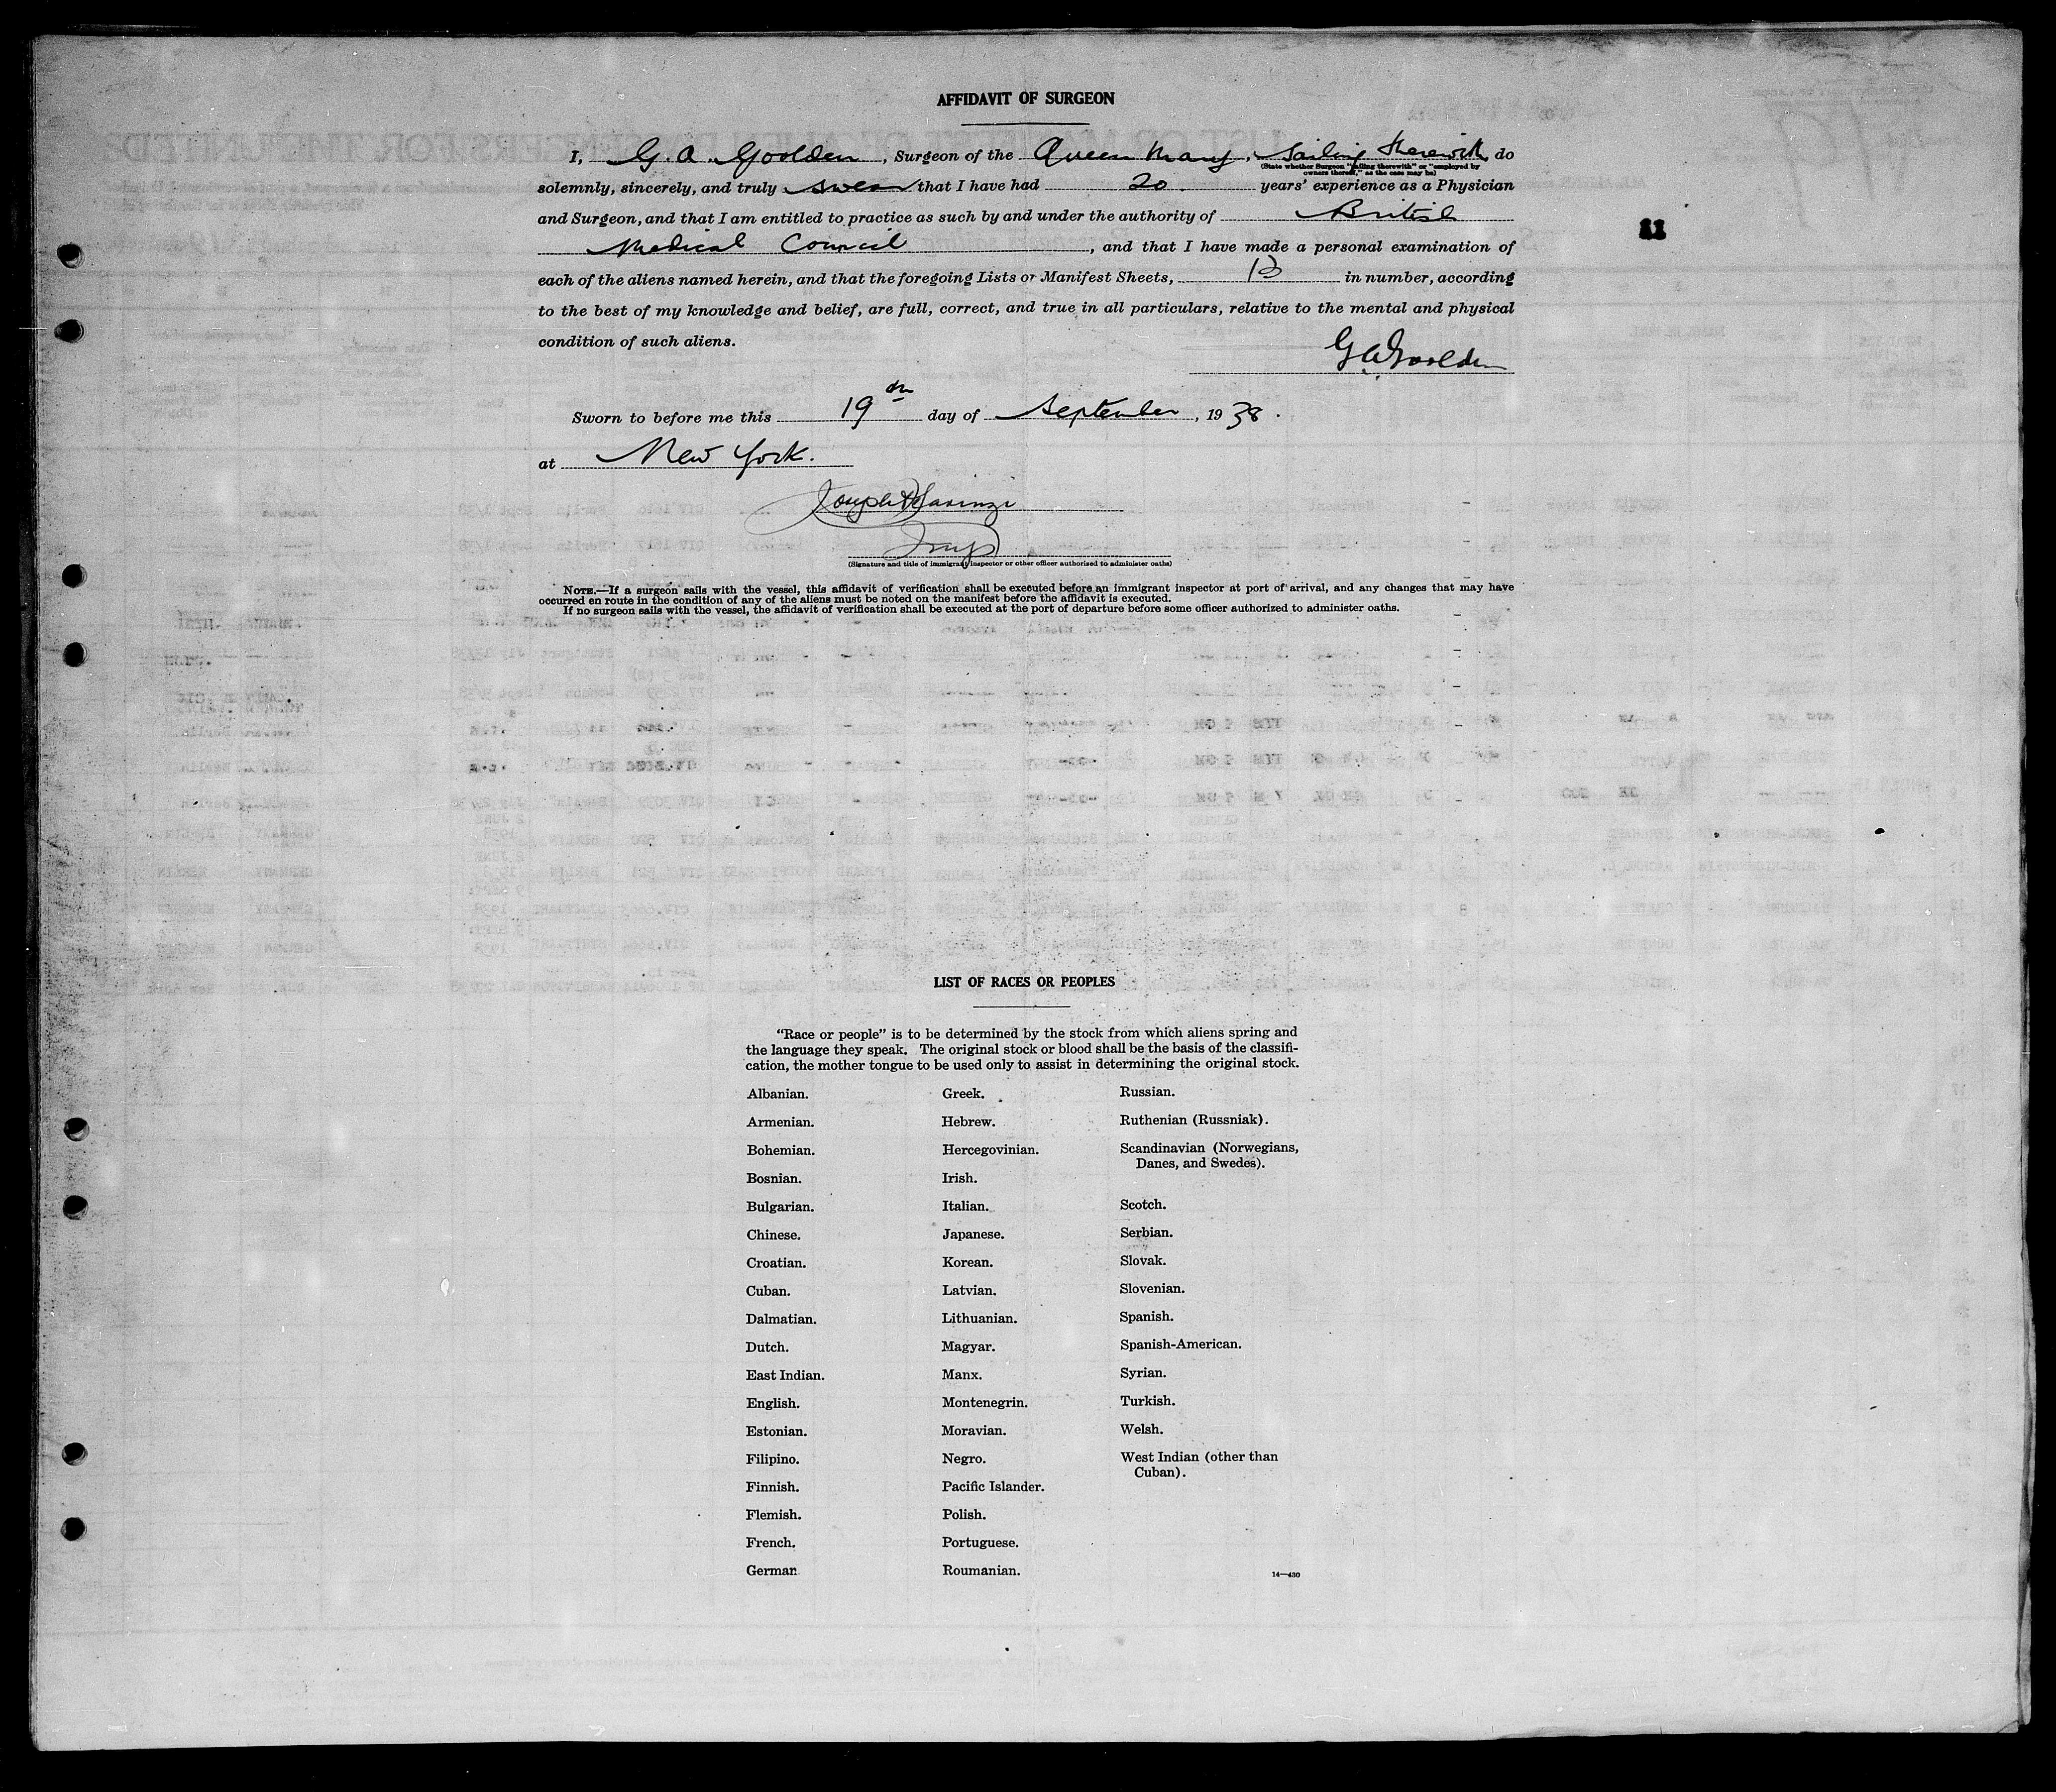 AFFIDAVIT OF SURGEON
I, G. A. Goolden, Surgeon of the Queen Mary, Sailing therewith, do
(State whether Surgeon "sailing therewith" or "employed by
owners thereof," as the case may be)
solemnly, sincerely, and truly swear that I have had 20 years' experience as a Physician
and Surgeon, and that I am entitled to practice as such by and under the authority of British
11
Medical Council, and that I have made a personal examination of
each of the aliens named herein, and that the foregoing Lists or Manifest Sheets, 13 in number, according
to the best of my knowledge and belief, are full, correct, and true in all particulars, relative to the mental and physical
condition of such aliens.
G A Goolden
Sworn to before me this 19th day of September, 1938.
at New York.
Joseph
(Signature and title of immigrant inspector or other officer authorized to administer oaths)
NOTE.—If a surgeon sails with the vessel, this affidavit of verification shall be executed before an immigrant inspector at port of arrival, and any changes that may have
occurred en route in the condition of any of the aliens must be noted on the manifest before the affidavit is executed.
If no surgeon sails with the vessel, the affidavit of verification shall be executed at the port of departure before some officer authorized to administer oaths.
LIST OF RACES OR PEOPLES
"Race or people" is to be determined by the stock from which aliens spring and
the language they speak. The original stock or blood shall be the basis of the classifi-
cation, the mother tongue to be used only to assist in determining the original stock.
Albanian.
Armenian.
Bohemian.
Bosnian.
Bulgarian.
Chinese.
Croatian.
Cuban.
Dalmatian.
Dutch.
East Indian.
English.
Estonian.
Filipino.
Finnish.
Flemish.
French.
German
Greek.
Hebrew.
Hercegovinian.
Irish.
Italian.
Japanese.
Korean.
Latvian.
Lithuanian.
Magyar.
Manx.
Montenegrin.
Moravian.
Negro.
Pacific Islander.
Polish.
Portuguese.
Roumanian.
Russian.
Ruthenian (Russniak).
Scandinavian (Norwegians,
Danes, and Swedes).
Scotch.
Serbian.
Slovak.
Slovenian.
Spanish.
Spanish-American.
Syrian.
Turkish.
Welsh.
West Indian (other than
Cuban).
14—430